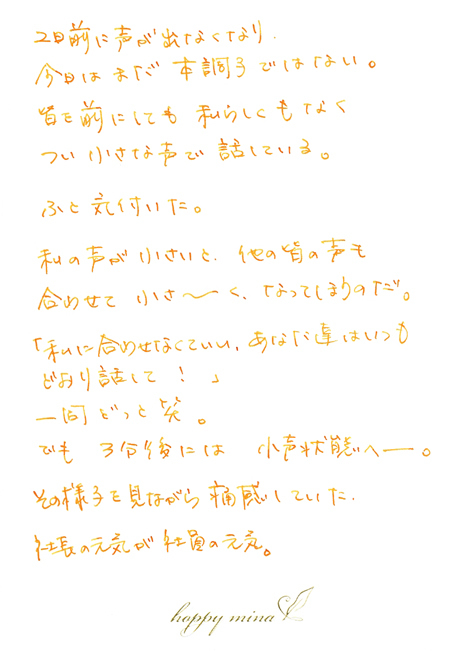 2日前に声が出なくなり.
今日は まだ 本調子ではない。
皆を前にしても 私らしくもなく
つい 小さな声で 話している。
ふと 気付いた。
私の声が 小さいと、他の皆の声も
合わせて 小さ〜く、なってしまうのだ。
「私に合わせなくていい、あなた達はいつも
どおり話して！」
一同 どっと笑。
でも 3分後には 小声状態へー。
その様子を見ながら 痛感していた.
社長の元気が社員の元気。
happy mina